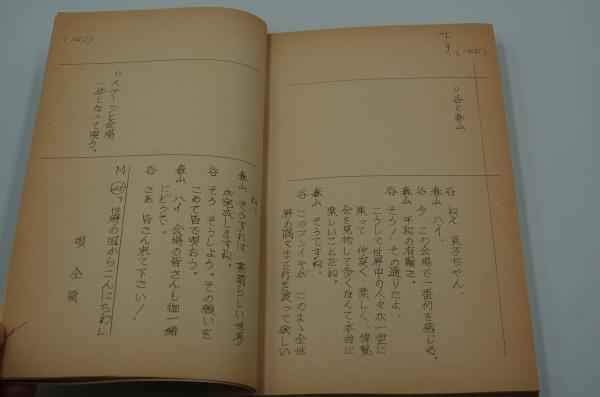 下手
(145)
○谷と森山
谷 ねえ 良子ちゃん。
森山 ハイ。
谷 今、この会場で一番何を感じる。
森山 平和の有難さ。
谷 そう! その通りだよ。
こうして世界中の人々が一堂に
集って 仲良く 楽しく、博覧
会を見物して歩くなんて本当に
楽しいことだね。
森山 そうですね。
谷 このフンイキが、このまゝ全世
界の隅々まで行き渡って欲しい
(145)
○ステージと会場
一体となって唄う。
ね。
森山 そうすれば 素晴らしい世界
が完成しますね。
谷 そう、そうしよう。その願いを
こめて皆で唄おう。
森山 ハイ、会場の皆さんも御一緒
にどうぞ。
谷 さあ 皆さん来て下さい!
M
「世界の国からこんにちわ」
唄 全員